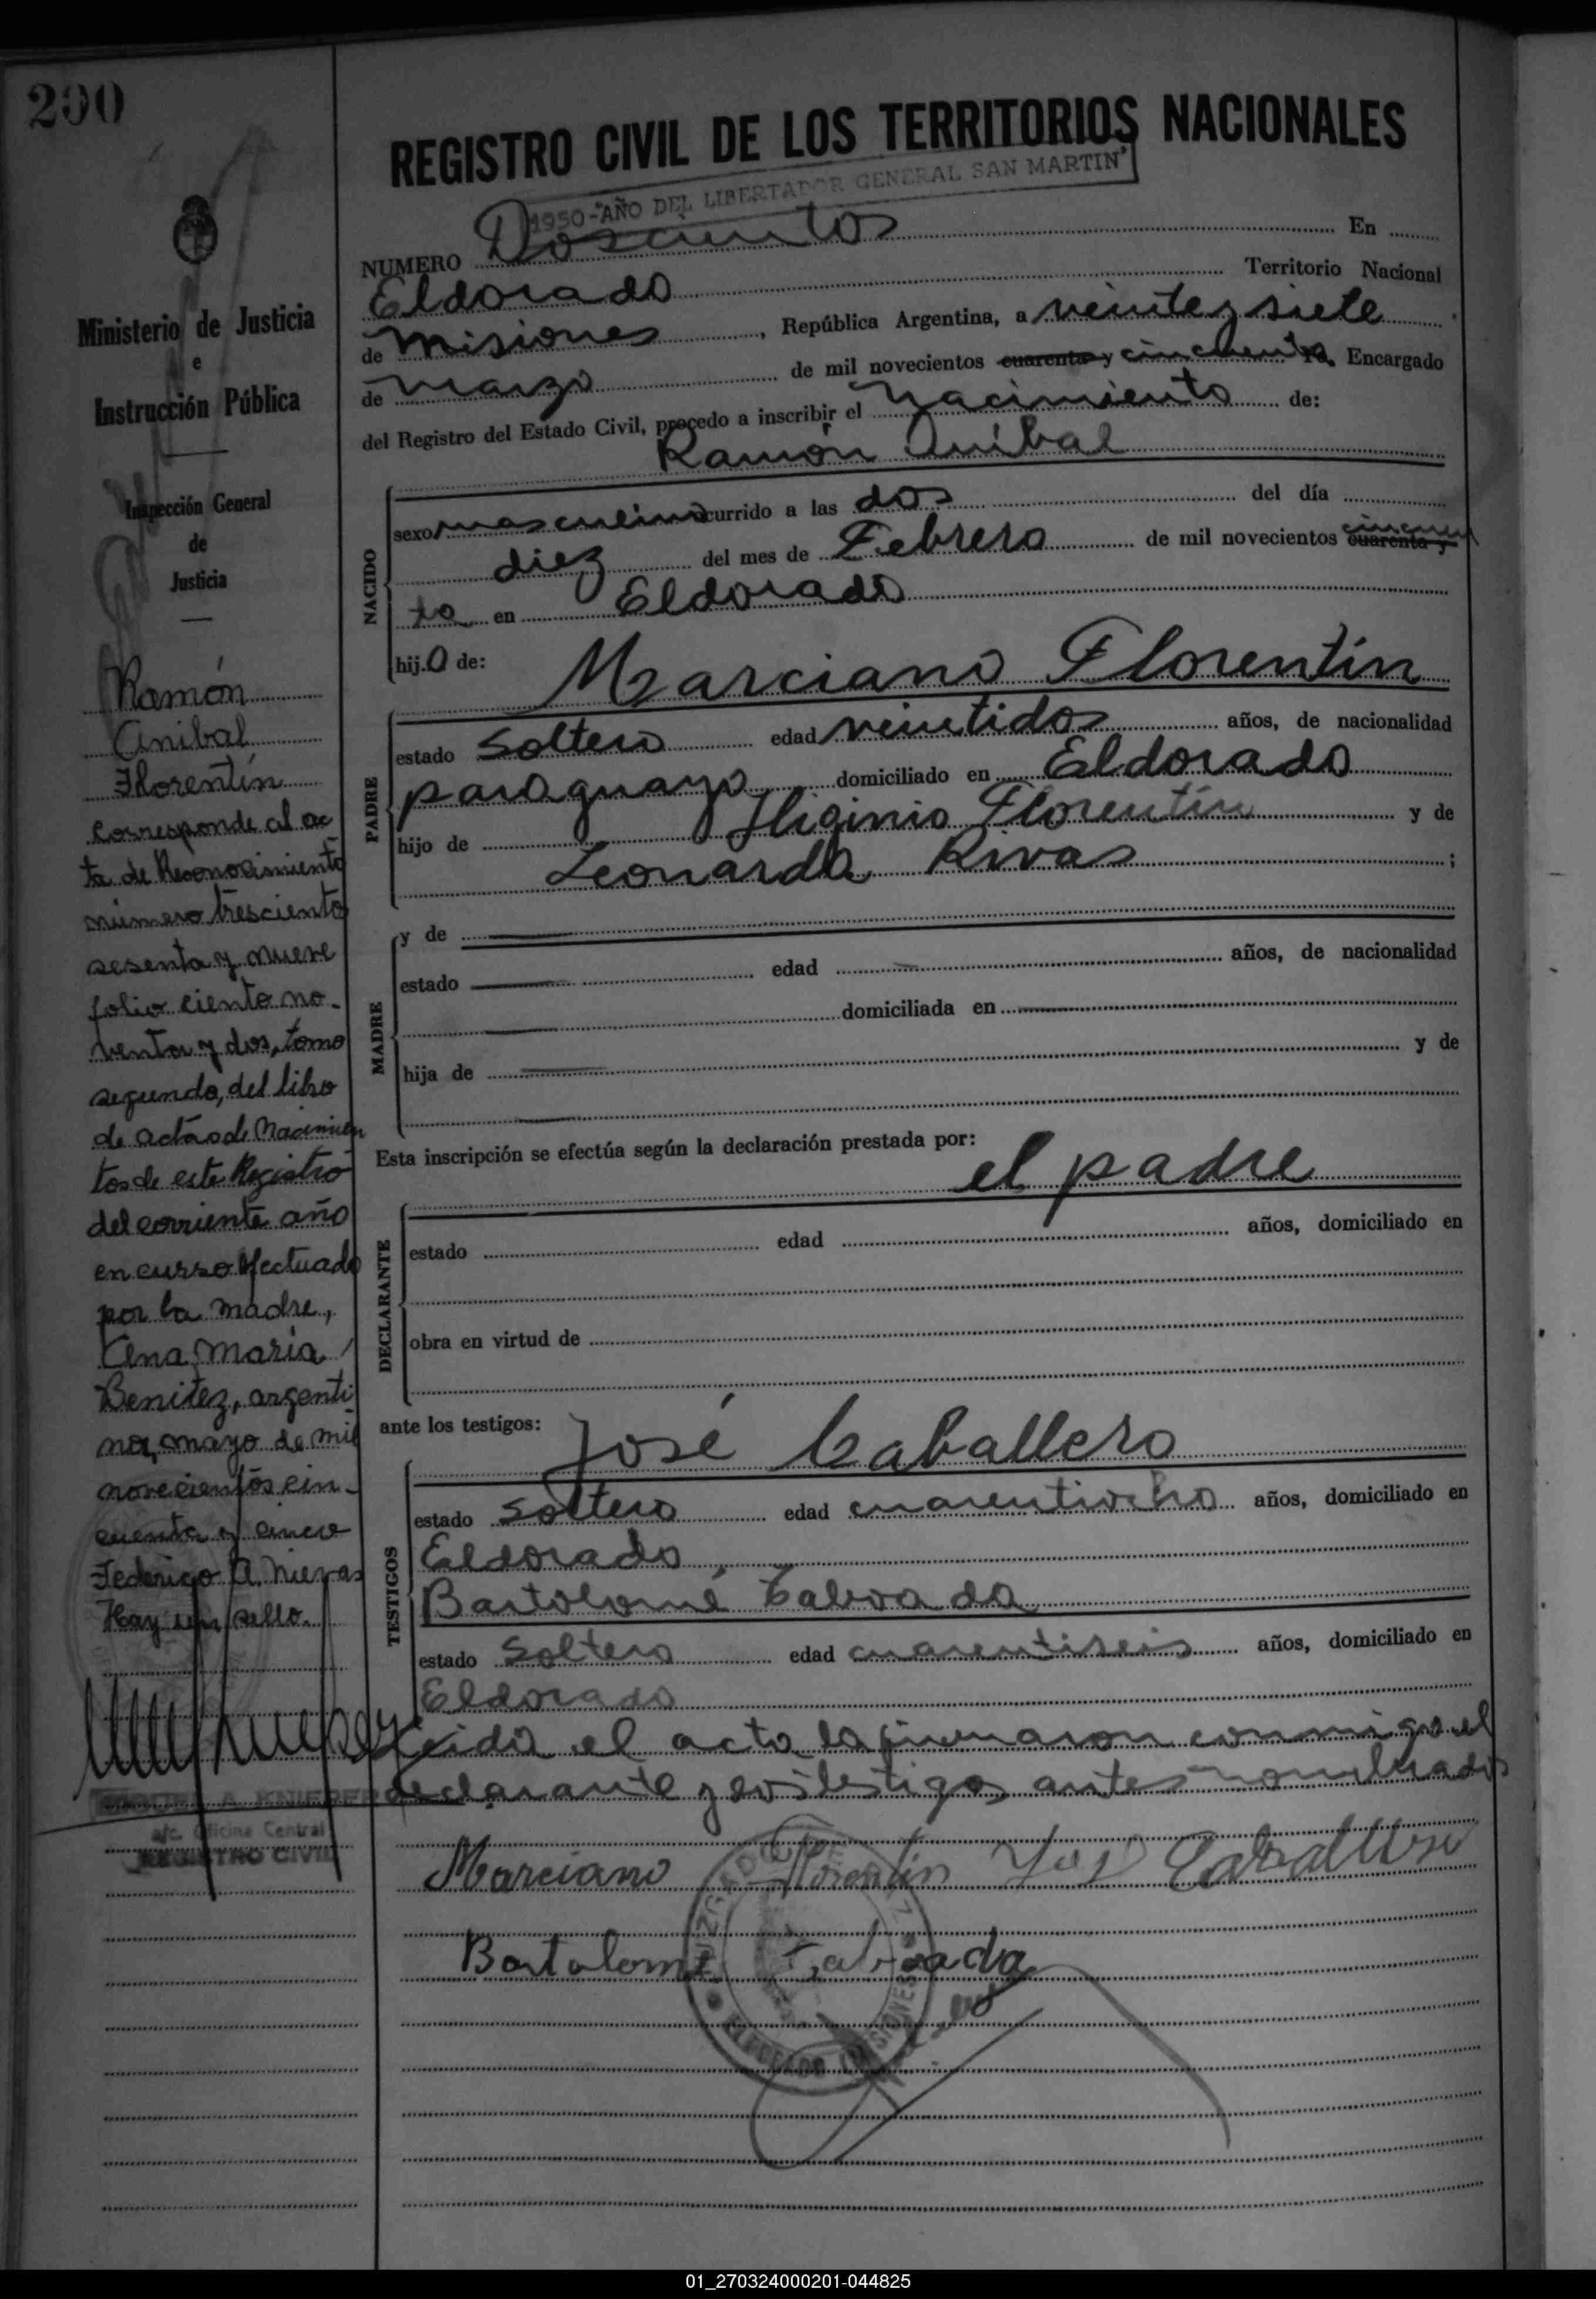 200
REGISTRO CIVIL DE LOS TERRITORIOS NACIONALES
1950-"AÑO DEL LIBERTADOR GENERAL SAN MARTIN"
NUMERO Doscientos En
Eldorado Territorio Nacional
de Misiones, República Argentina, a veinte y siete
de marzo de mil novecientos cuarenta y cincuenta. Encargado
del Registro del Estado Civil, procedo a inscribir el nacimiento de:
Ramón Anibal
NACIDO
sexo masculino ocurrido a las dos del día
diez del mes de Febrero de mil novecientos cuarenta y cincuen
ta en Eldorado
hijo de: Marciano Florentín
PADRE
estado soltero edad veintidos años, de nacionalidad
paraguayo domiciliado en Eldorado
hijo de Higinio Florentín y de
Leonarda Rivas ;
MADRE
y de
estado edad años, de nacionalidad
domiciliada en
hija de y de
Esta inscripción se efectúa según la declaración prestada por:
el padre
DECLARANTE
estado edad años, domiciliado en
obra en virtud de
ante los testigos: José Caballero
TESTIGOS
estado soltero edad cuarentiocho años, domiciliado en
Eldorado
Bartolomé Taboada
estado soltero edad cuarentiseis años, domiciliado en
Eldorado
Leida el acta la firmaron conmigo el
declarante y los testigos antes nombrados
Marciano Florentin José Caballero
Bartolome Taboada
ELDORADO MISIONES
Ministerio de Justicia
e
Instrucción Pública
Inspección General
de
Justicia
Ramón
Anibal
Florentín
Corresponde al ac
ta de Reconocimiento
número tresciento
sesenta y nueve
folio ciento no-
venta y dos, tomo
segundo, del libro
de actas de Nacimien
tos de este Registro
del corriente año
en curso efectuado
por la madre,
Ana María
Benitez, argenti
na, mayo de mil
novecientos cin-
cuenta y cinco
Federico A.
Hay un sello.
a/c. Oficina Central
REGISTRO CIVIL
01_270324000201-044825